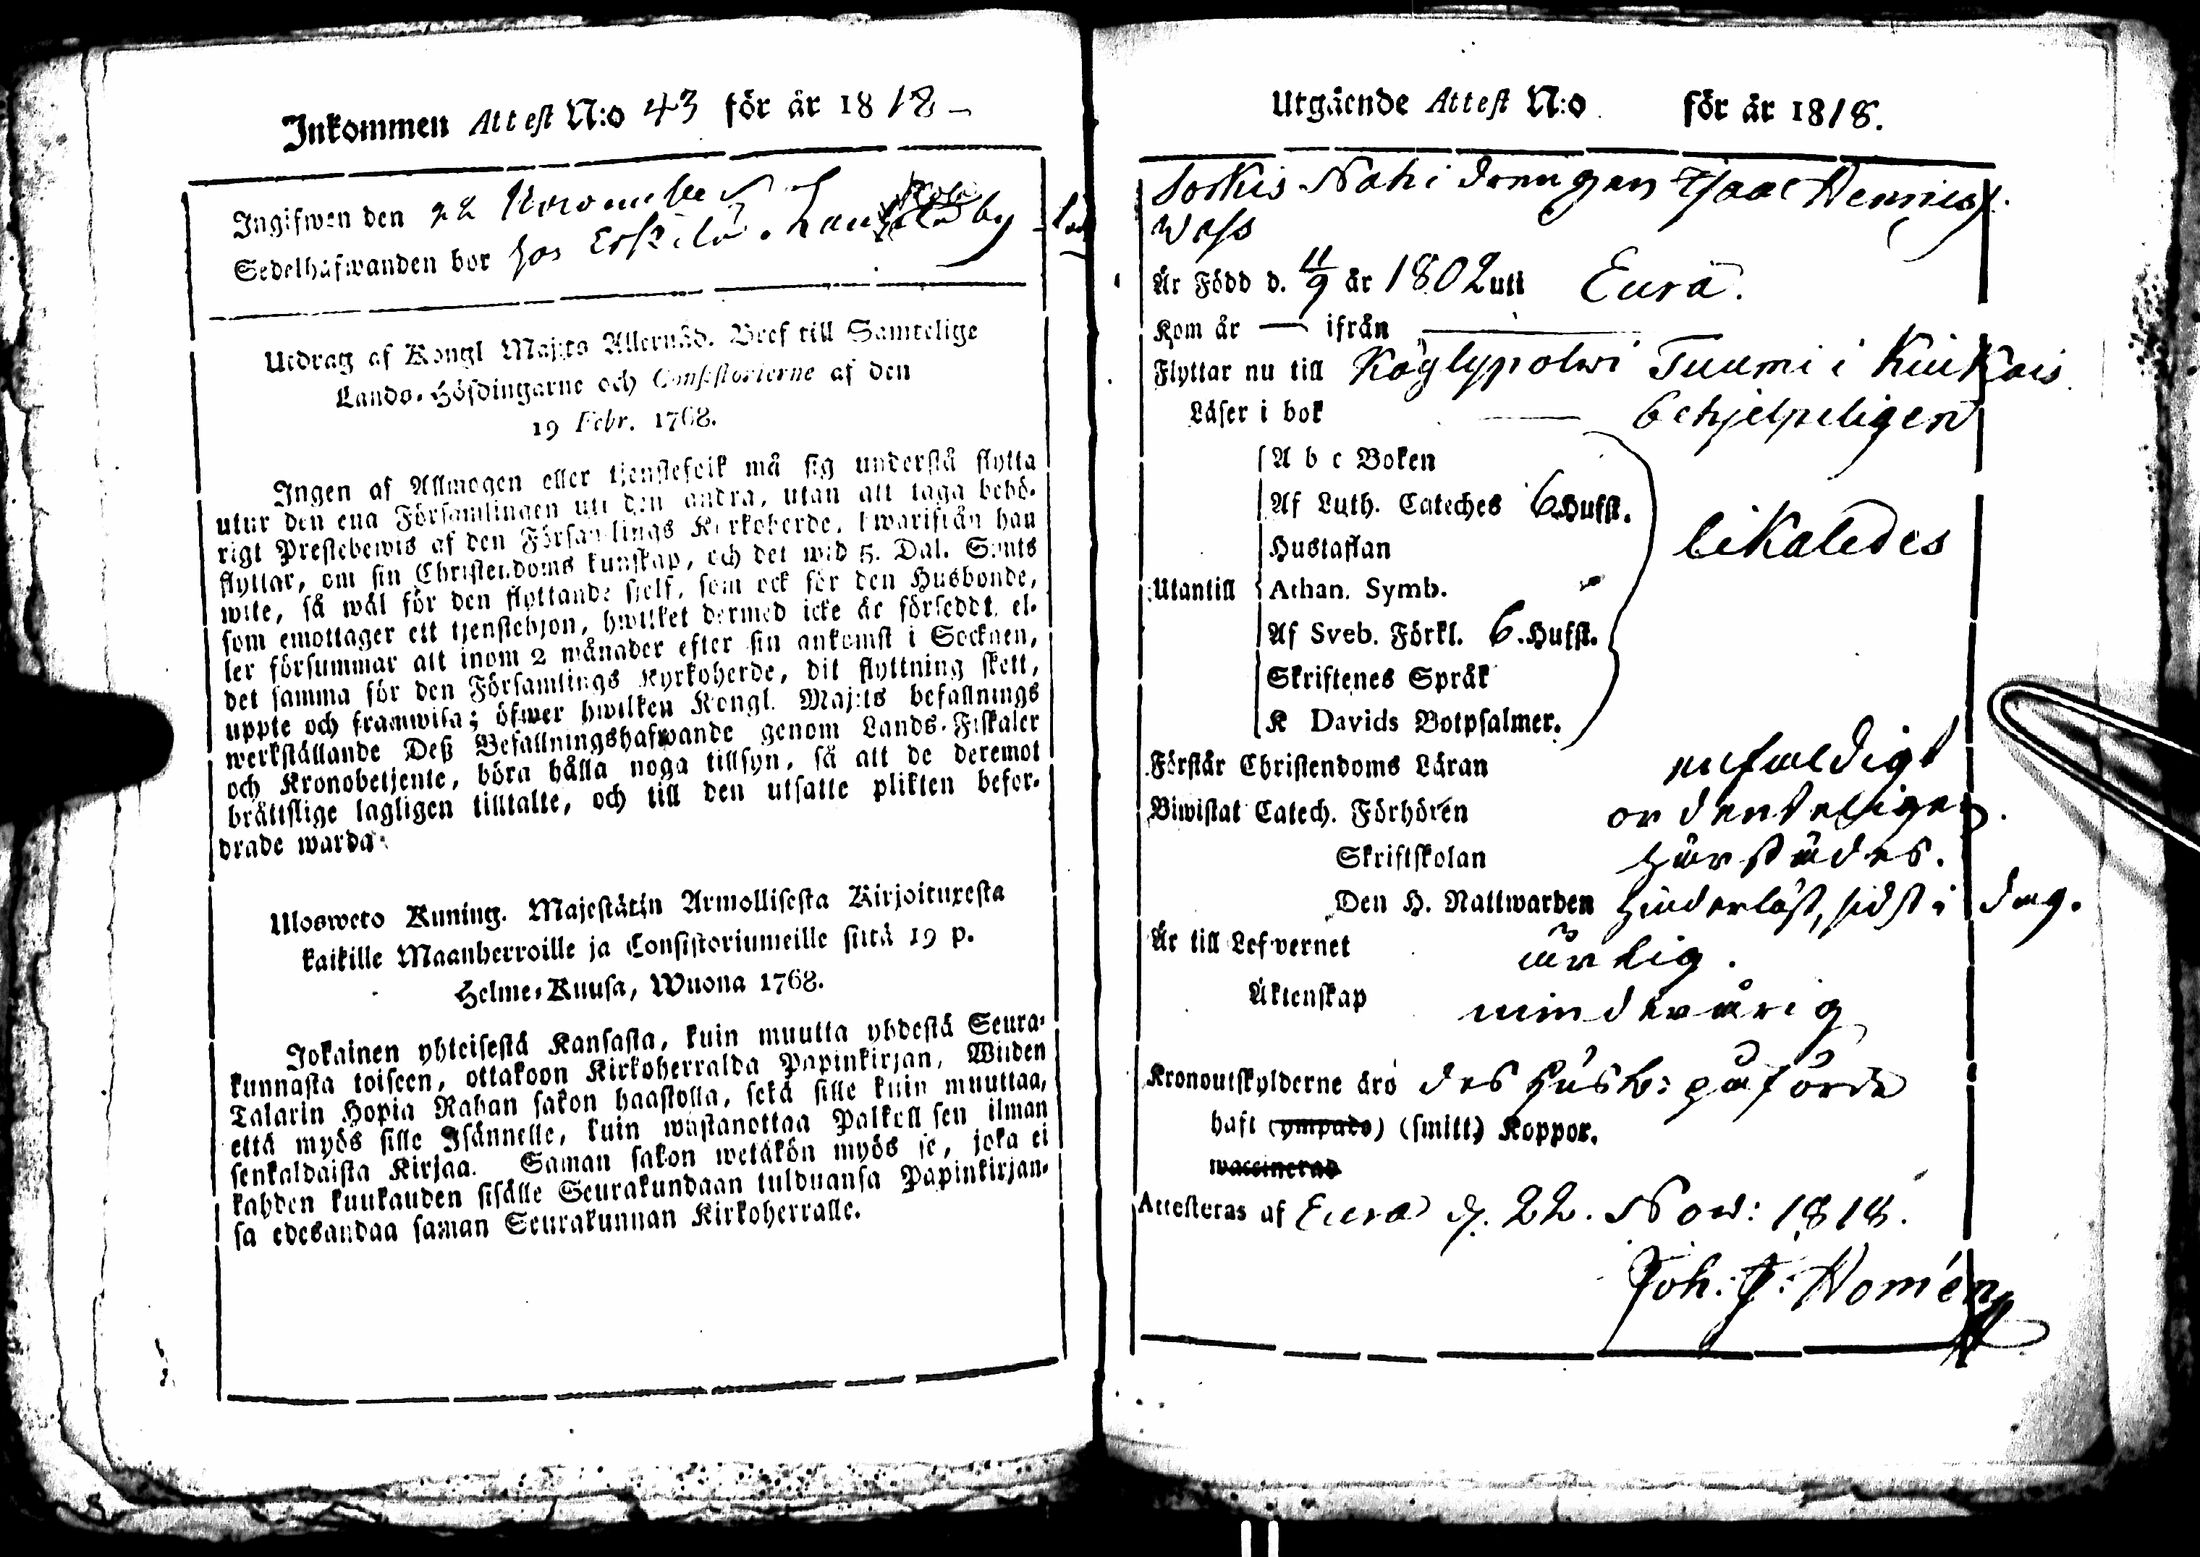 Inkommen Attest N:o 43 för år 1818
Ingifwen den 22 November
Sedelhafwanden bor hos Erkilä
Utdrag af Kongl Maj:ts Allernåd. Bref till Samtelige
Lands-Höfdingarne och Consistorierne af den
19 Febr. 1768.
Ingen af Allmogen eller tjenstefolk må sig understå flytta
utur den ena Församlingen uti den andra, utan att taga behö-
rigt Prestebewis af den Församlings Kyrkoherde, hwarifrån han
flyttar, om sin Christendoms kunskap, och det wid 5. Dal. S:mts
wite, så wäl för den flyttande sjelf, som ock för den Husbonde,
som emottager ett tjenstehjon, hwilket dermed icke är försedt, el-
ler försummar att inom 2 månader efter sin ankomst i Socknen,
det samma för den Församlings Kyrkoherde, dit flyttning skett,
uppte och framwisa; öfwer hwilken Kongl. Maj:ts befallnings
werkställande Deß Befallningshafwande genom Lands-Fiskaler
och Kronobetjente, böra hålla noga tillsyn, så att de deremot
bråttslige lagligen tilltalte, och till den utsatte plikten befor-
drade warda.
Ulosweto Kuning. Majestätin Armollisesta Kirjoituxesta
kaikille Maanherroille ja Consistoriumeille siitä 19 p.
Helme-Kuusa, Wuona 1768.
Jokainen yhteisestä Kansasta, kuin muutta yhdestä Seura-
kunnasta toiseen, ottakoon Kirkoherralda Papinkirjan, Wiiden
Talarin Hopia Rahan sakon haastolla, sekä sille kuin muuttaa,
että myös sille Isännelle, kuin wastanottaa Palkollisen ilman
senkaldaista Kirjaa. Saman sakon wetäkön myös se, joka ei
kahden kuukauden sisälle Seurakundaan tulduansa Papinkirjan-
sa edesandaa saman Seurakunnan Kirkoherralle.
Utgående Attest N:o för år 1818.
Sorkis Nohi drengen Isaac Henrics
Är Född d. 11/9 år 1802 uti Eura.
Kom år — ifrån —
Flyttar nu till Köylypolwi Tuumi i Kiukais
Läser i bok — behjelpeligen
A b c Boken
Af Luth. Cateches 6. Hufst.
Hustaflan likaledes
Utantill Athan. Symb.
Af Sveb. Förkl. 6. Hufst.
Skriftenes Språk
K Davids Botpsalmer.
Förstår Christendoms Läran enfaldigt
Biwistat Catech. Förhören ordenteligen.
Skriftskolan härstädes.
Den H. Nattwarden hinderlöst, sidst i dag.
Är till Lefvernet ärlig.
Äktenskap minderårig
Kronoutskylderne äro des Husb: påförde
haft (ympade) (smitt) Koppor.
waccinerad
Attesteras af Eura d. 22. Nov: 1818.
Joh. F: Homén